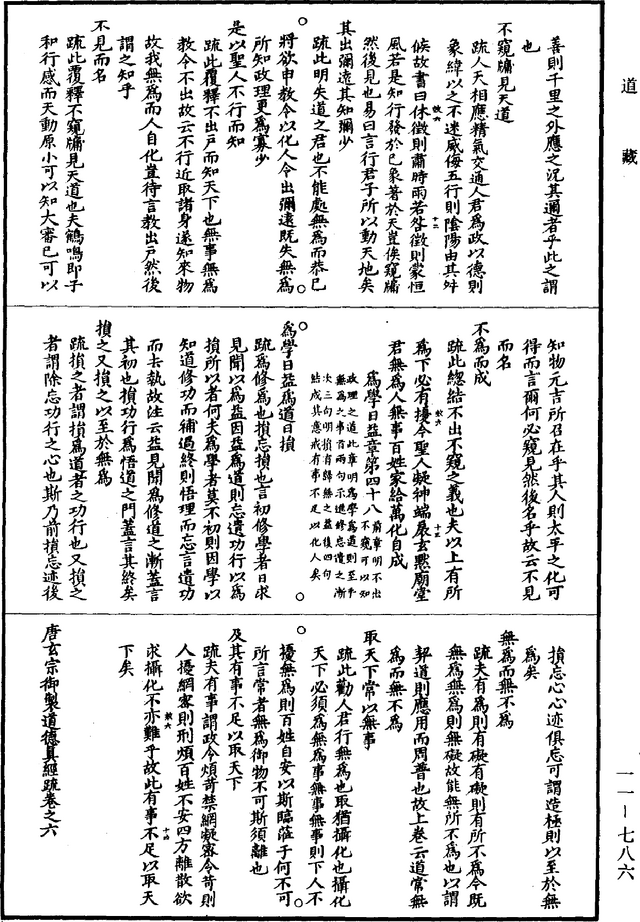 道藏
善則千里之外應之況其邇者乎此之謂
也
不窺牖見天道
疏人天相應精氣交通人君為政以德則
象緯以之不迷威侮五行則陰陽由其舛
候故書曰休徵則肅時雨若咎徵則蒙恒
風若是知行發於已象著於天豈俟窺牖
然後見也易曰言行君子所以動天地矣
其出彌遠其知彌少
疏此明失道之君也不能處無為而恭已
將欲申教令以化人令出彌遠既失無為
所知政理更為寡少
是以聖人不行而知
疏此覆釋不出戶而知天下也無事無為
教令不出故云不行近取諸身遂知來物
故我無為而人自化豈待言教出戶然後
謂之知乎
不見而名
疏此覆釋不窺牖見天道也夫鶴鳴即子
和行感而天動原小可以知大審已可以
知物元吉所召在乎其人則太平之化可
得而言爾何必窺見然後名乎故云不見
而名
不為而成
疏此總結不出不窺之義也夫以上有所
為下必有擾今聖人凝神端扆玄默廟堂
君無為人無事百姓家給萬化自成
為學日益章第四十八
前章明不出不窺可以知政理之道此章明為學為道則至乎無為之事首兩句示進修忘遣之漸次三句明損有歸無之益後四句結成其應戒有事不足以化人矣
為學日益為道日損
疏為修為也損忘損也言初修學者日求
見聞以為益因益為道則忘遺功行以為
損所以者何夫為學者莫不初則因學以
知道修功而補過終則悟理而忘言遺功
而去執故注云益見聞為修道之漸蓋言
其初也損功行為悟道之門蓋言其終矣
損之又損之以至於無為
疏損之者謂損為道者之功行也又損之
者謂除忘功行之心也斯乃前損忘迹後
損忘心心迹俱忘可謂造極則以至於無
為矣
無為而無不為
疏夫有為則有礙有礙則有所不為今既
無為無為則無礙故能無所不為也以謂
契道則應用而周普也故上卷云道常無
為而無不為
取天下常以無事
疏此勸人君行無為也取猶攝化也攝化
天下必須為無為事無事無事則下人不
擾無為則百姓自安以斯臨蒞于何不可
所言常者無為御物不可斯須離也
及其有事不足以取天下
疏夫有事謂政令煩苛禁網凝密令苛則
人擾網密則刑煩百姓不安四方離散欲
求攝化不亦難乎故此有事不足以取天
下矣
唐玄宗御製道德真經疏卷之六
一一－七八六